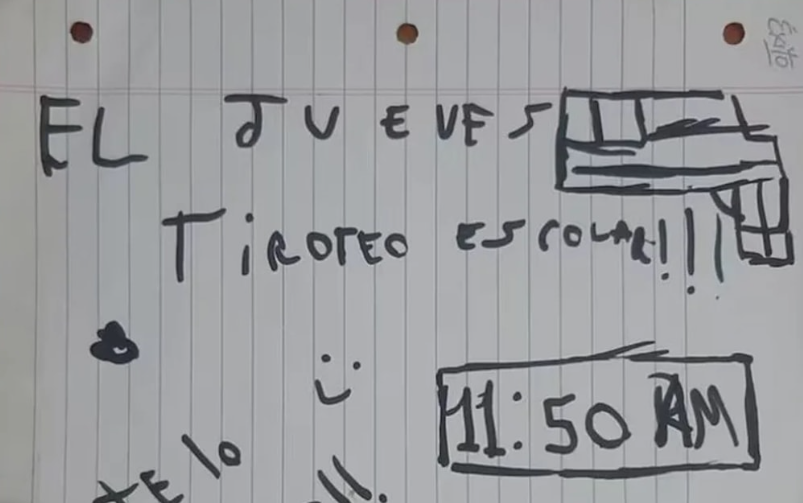 EL JUEVES
TIROTEO ESCOLAR!!!
11:50 AM